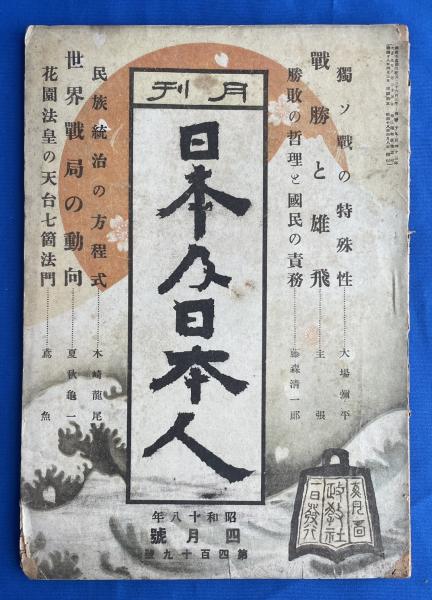 獨ソ戰の特殊性………大場彌平
戰勝と雄飛………主張
勝敗の哲理と國民の責務………藤森清一郎
月刊
日本及日本人
民族統治の方程式………木崎龍尾
世界戰局の動向………夏秋龜一
花園法皇の天台七箇法門………鳶魚
昭和十八年
四月號
第四百十九號
政教社
一日發行